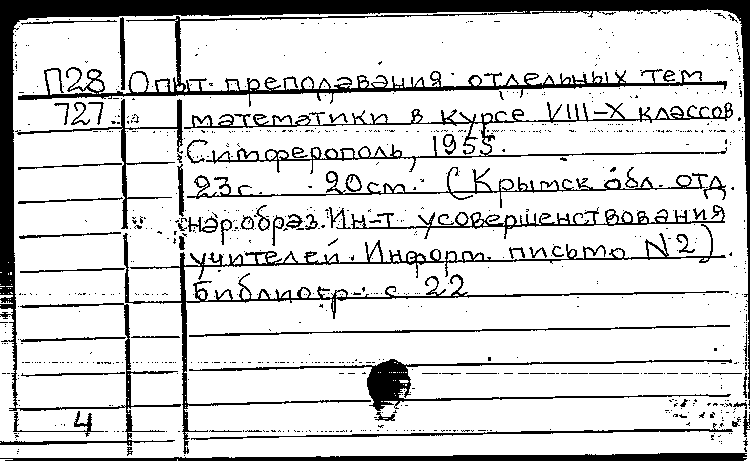 П28 Опыт преподавания отдельных тем
727 математики в курсе VIII-X классов.
Симферополь, 1955.
23с. 20см. (Крымск. обл. отд.
нар.образ. Ин-т усовершенствования
учителей. Информ. письмо N2).
Библиогр: с. 22
4